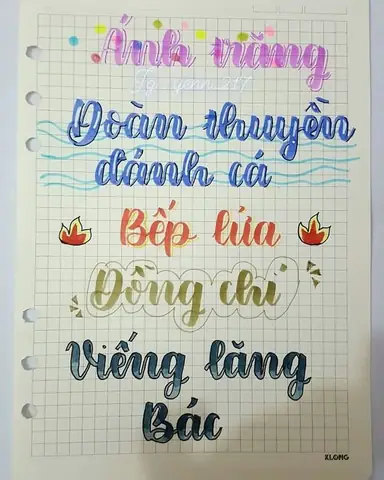 Ánh trăng
Đoàn thuyền
đánh cá
Bếp lửa
Đồng chí
Viếng lăng
Bác
KLONG